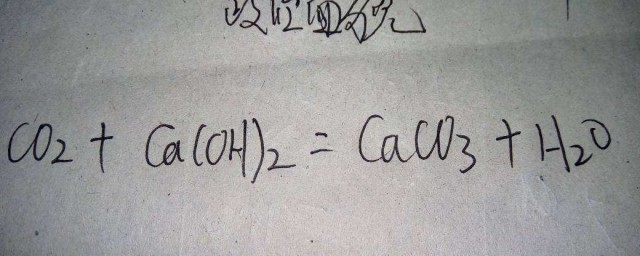 CO₂ + Ca(OH)₂ = CaCO₃ + H₂O